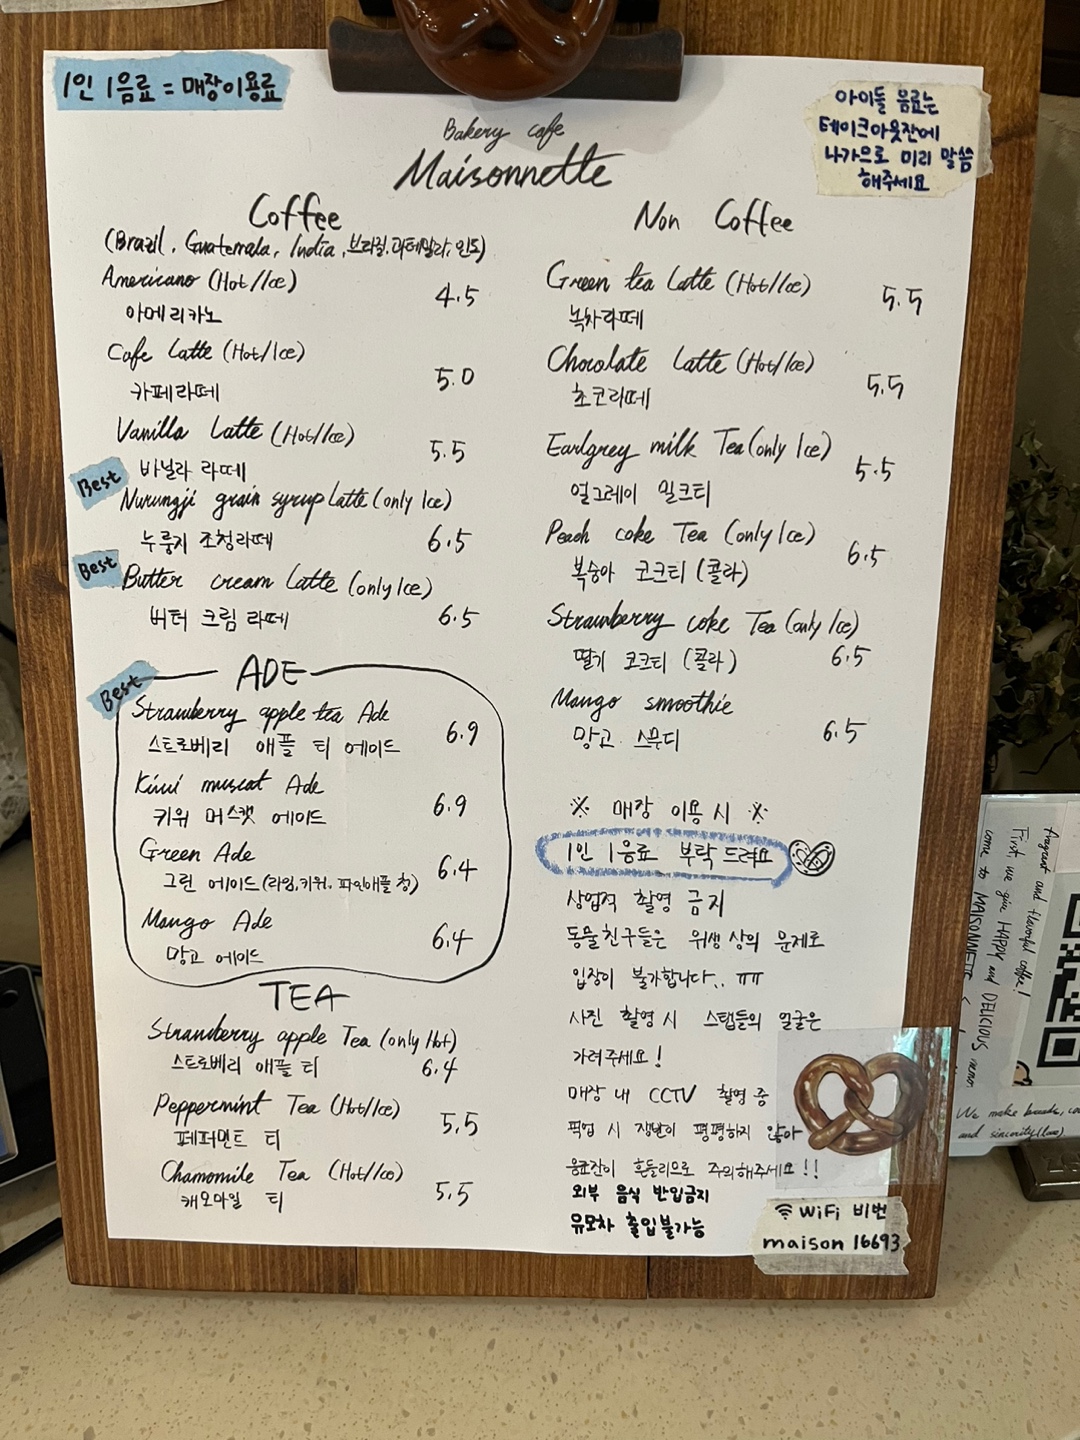 1인 1음료 = 매장이용료
아이들 음료는
테이크아웃잔에
나가므로 미리 말씀
해주세요
Bakery cafe
Maisonnette
Coffee
(Brazil, Guatemala, India, 브라질, 과테말라, 인도)
Americano (Hot/Ice)
아메리카노
4.5
Cafe Latte (Hot/Ice)
카페라떼
5.0
Vanilla Latte (Hot/Ice)
바닐라 라떼
5.5
Best
Nurungji grain syrup Latte (only Ice)
누룽지 조청라떼
6.5
Best
Butter cream Latte (only Ice)
버터 크림 라떼
6.5
Best
ADE
Strawberry apple tea Ade
스트로베리 애플 티 에이드
6.9
Kiwi muscat Ade
키위 머스캣 에이드
6.9
Green Ade
그린 에이드 (라임, 키위, 파인애플 청)
6.4
Mango Ade
망고 에이드
6.4
TEA
Strawberry apple Tea (only Hot)
스트로베리 애플 티
6.4
Peppermint Tea (Hot/Ice)
페퍼민트 티
5.5
Chamomile Tea (Hot/Ice)
캐모마일 티
5.5
Non Coffee
Green tea Latte (Hot/Ice)
녹차라떼
5.5
Chocolate Latte (Hot/Ice)
초코라떼
5.5
Earlgrey milk Tea (only Ice)
얼그레이 밀크티
5.5
Peach coke Tea (only Ice)
복숭아 코크티 (콜라)
6.5
Strawberry coke Tea (only Ice)
딸기 코크티 (콜라)
6.5
Mango smoothie
망고 스무디
6.5
※ 매장 이용 시 ※
1인 1음료 부탁 드려요
상업적 촬영 금지
동물친구들은 위생상의 문제로
입장이 불가합니다.. ㅠㅠ
사진 촬영 시 스탭들의 얼굴은
가려주세요!
매장 내 CCTV 촬영 중
픽업 시 쟁반이 평평하지 않아
음료잔이 흔들리므로 주의해주세요!!
외부 음식 반입금지
유모차 출입불가능
WiFi 비번
maison 16693
fragrant and flavorful coffee!
First, we give HAPPY and DELICIOUS
come to MAISONNETTE
We make breads,
and sincerity (love)